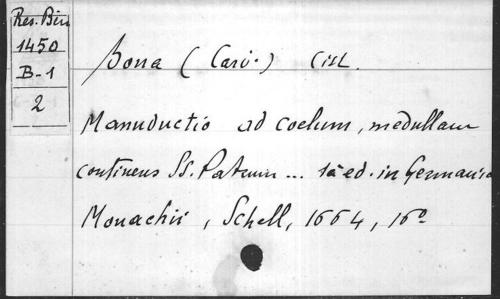 Res. Bin
1450
B-1
2
Bona (Card.) Cist.
Manuductio ad coelum, medullam
continens SS. Patrum ... 1a ed. in Germania
Monachii, Schell, 1664, 16°